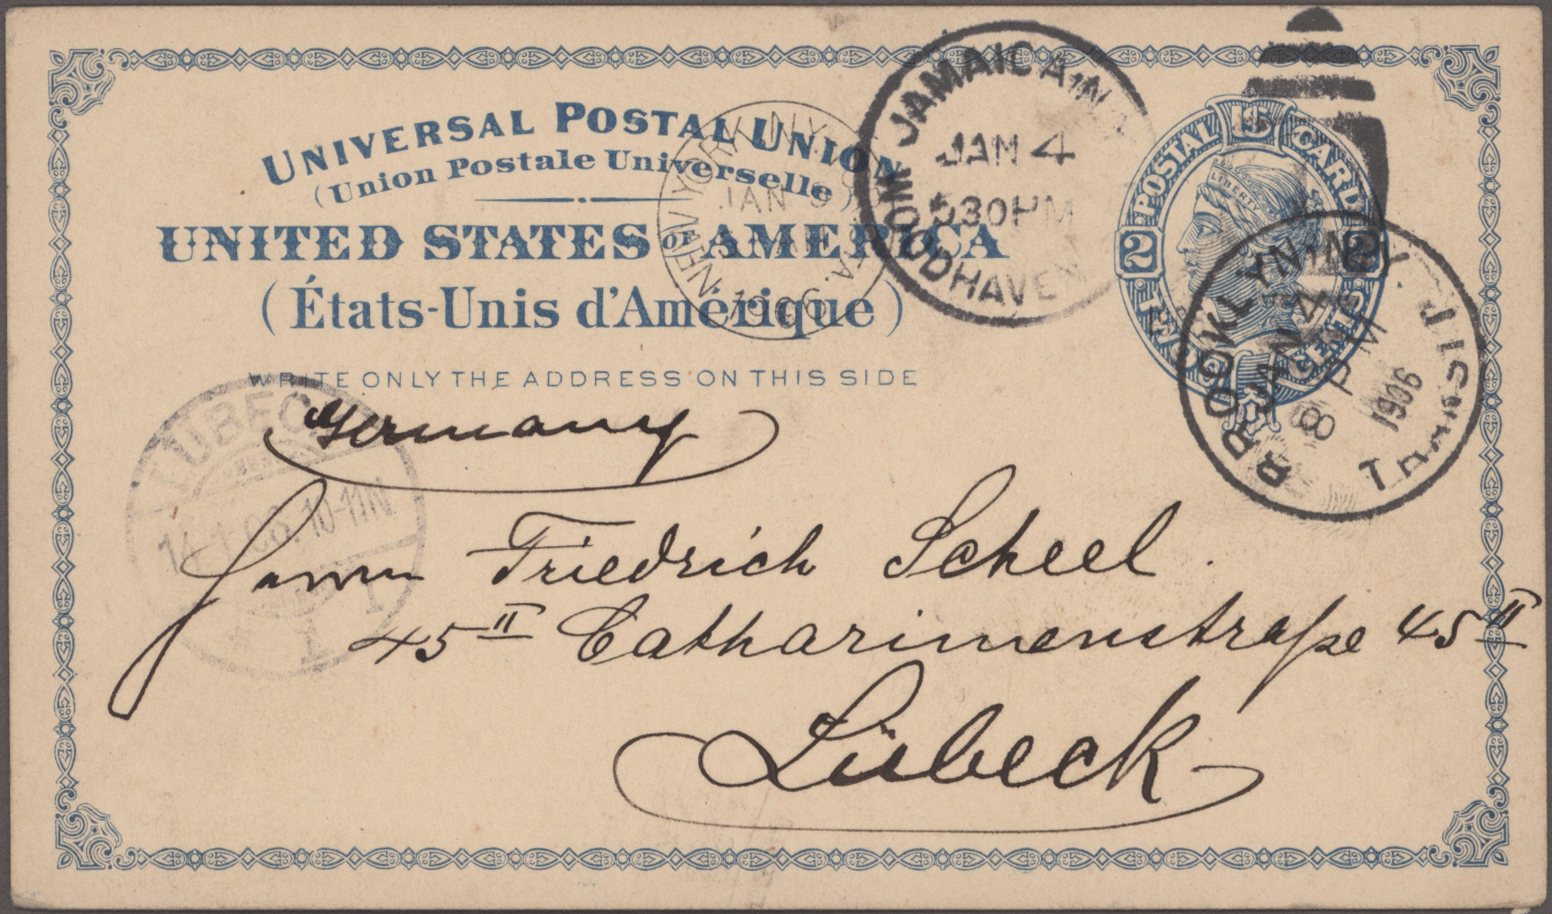 UNIVERSAL POSTAL UNION
(Union Postale Universelle)
UNITED STATES OF AMERICA
(États-Unis d'Amérique)
WRITE ONLY THE ADDRESS ON THIS SIDE
POSTAL CARD
LIBERTY
2 2
CENTS
JAMAICA, N.
JAN 4
530 PM
WOODHAVEN
NEW YORK N.Y.
JAN
1906
BROOKLYN, N.Y.
JAN 4
8 PM
1906
TRANSIT.
LÜBECK
14.1.06. 10-11N
1
Germany
Herrn Friedrich Scheel.
45 II Catharinenstraße 45 II
Lübeck